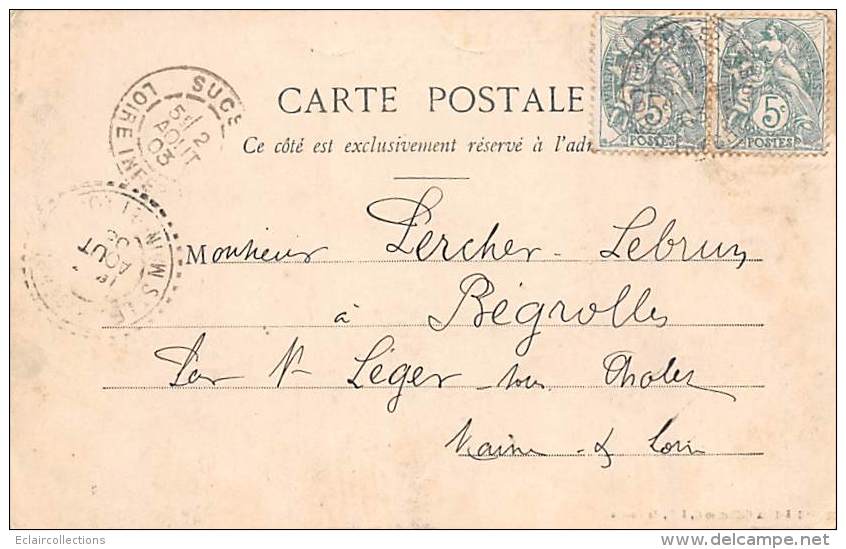 CARTE POSTALE
Ce côté est exclusivement réservé à l'adr
SUCE
LOIRE INFE
5E
2
AOUT
03
AOUT
5c
POSTES
5c
POSTES
Monsieur Percher-Lebrun
à Bégrolles
Par St Léger sous Cholet
Maine & Loire
Eclaircollections
delcampe.net